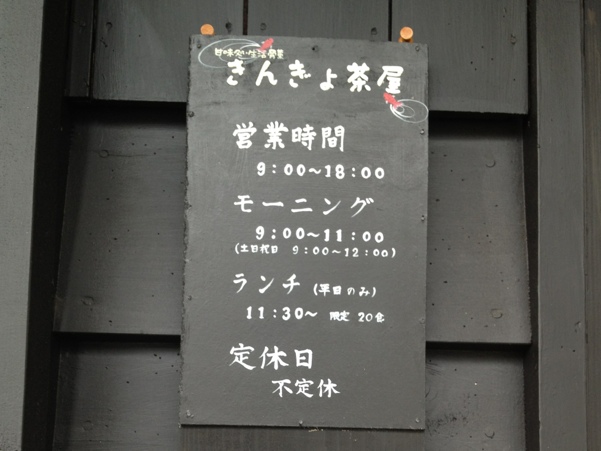 きんぎょ茶屋
営業時間
9:00〜18:00
モーニング
9:00〜11:00
(土日祝日 9:00〜12:00)
ランチ (平日のみ)
11:30〜 限定 20食
定休日
不定休